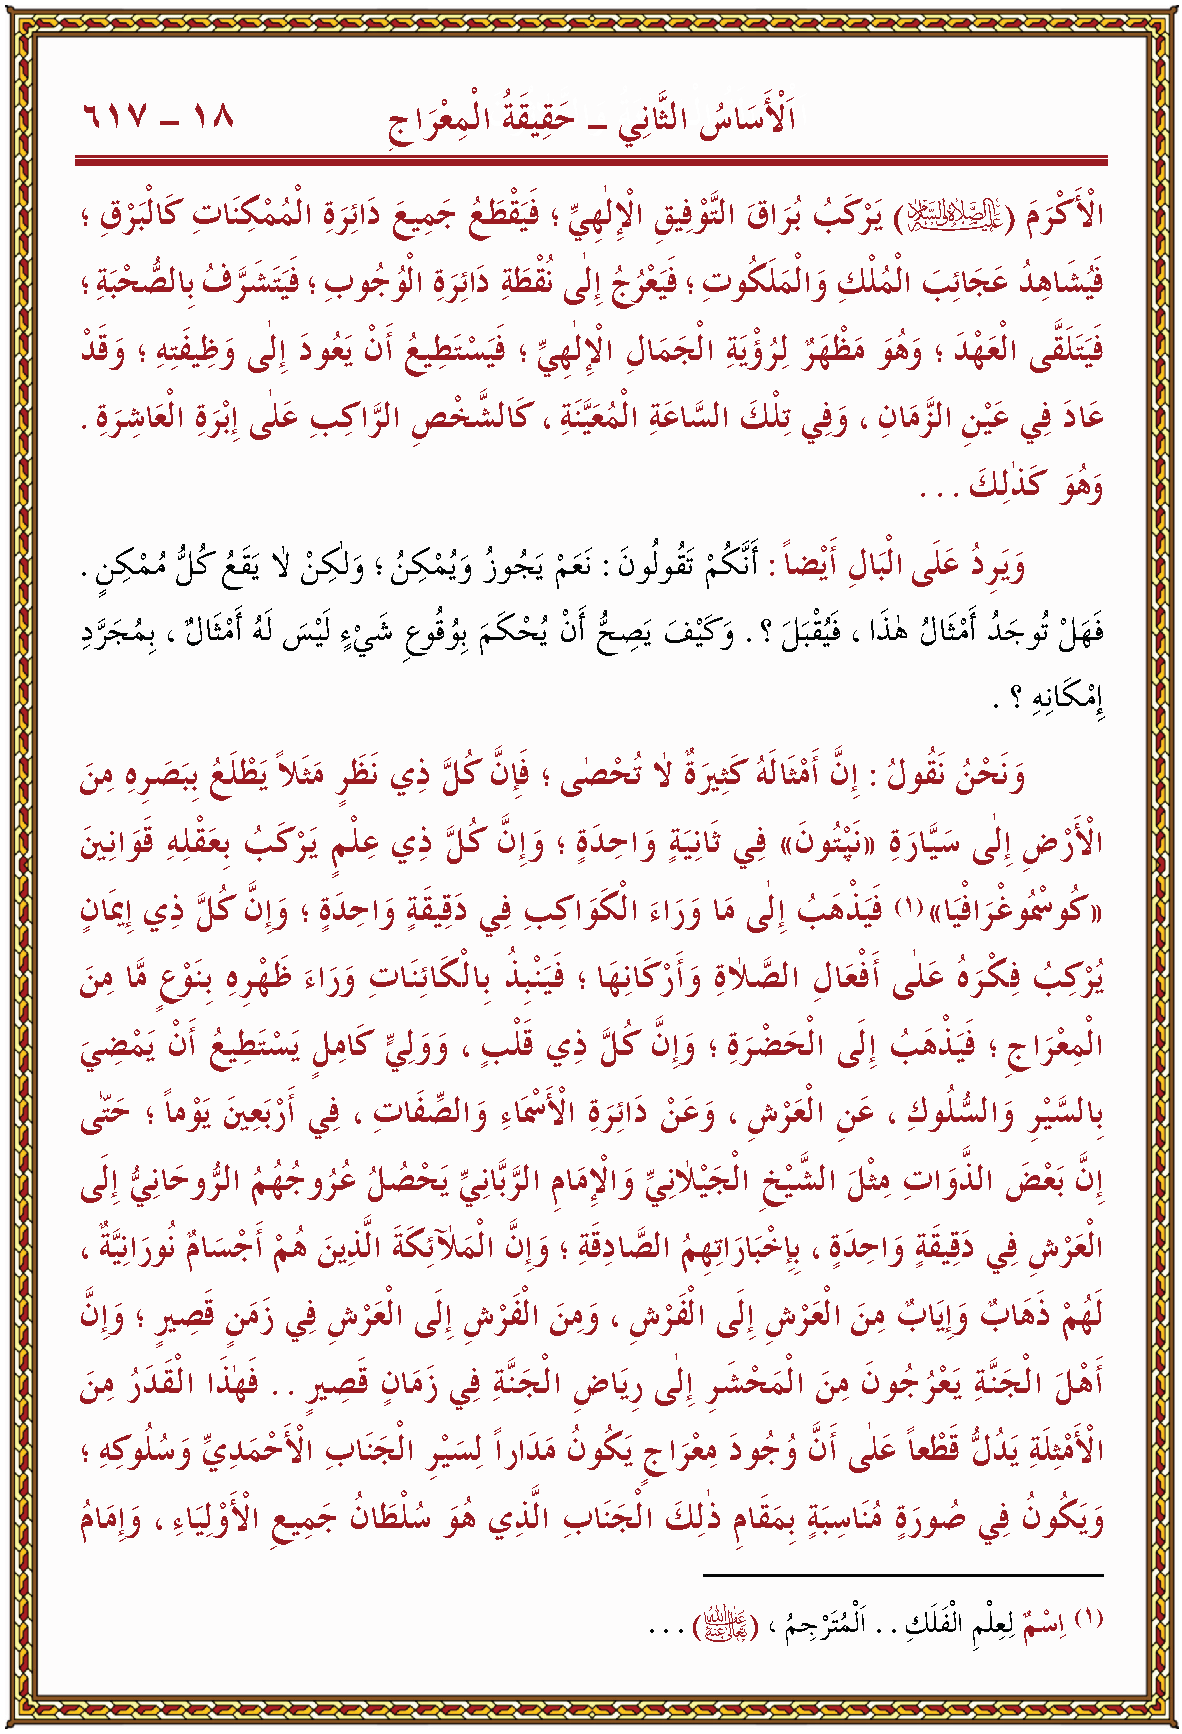 اَلْأَسَاسُ الثَّانِي ـ حَقِيقَةُ الْمِعْرَاجِ ١٨ ـ ٦١٧
الْأَكْرَمَ (عليه الصلاة والسلام) يَرْكَبُ بُرَاقَ التَّوْفِيقِ الْإِلٰهِيِّ ؛ فَيَقْطَعُ جَمِيعَ دَائِرَةِ الْمُمْكِنَاتِ كَالْبَرْقِ ؛
فَيُشَاهِدُ عَجَائِبَ الْمُلْكِ وَالْمَلَكُوتِ ؛ فَيَعْرُجُ إِلٰى نُقْطَةِ دَائِرَةِ الْوُجُوبِ ؛ فَيَتَشَرَّفُ بِالصُّحْبَةِ ؛
فَيَتَلَقَّى الْعَهْدَ ؛ وَهُوَ مَظْهَرٌ لِرُؤْيَةِ الْجَمَالِ الْإِلٰهِيِّ ؛ فَيَسْتَطِيعُ أَنْ يَعُودَ إِلٰى وَظِيفَتِهِ ؛ وَقَدْ
عَادَ فِي عَيْنِ الزَّمَانِ ، وَفِي تِلْكَ السَّاعَةِ الْمُعَيَّنَةِ ، كَالشَّخْصِ الرَّاكِبِ عَلٰى إِبْرَةِ الْعَاشِرَةِ .
وَهُوَ كَذٰلِكَ . . .
وَيَرِدُ عَلَى الْبَالِ أَيْضاً : أَنَّكُمْ تَقُولُونَ : نَعَمْ يَجُوزُ وَيُمْكِنُ ؛ وَلٰكِنْ لاٰ يَقَعُ كُلُّ مُمْكِنٍ .
فَهَلْ تُوجَدُ أَمْثَالُ هٰذَا ، فَيُقْبَلَ ؟ . وَكَيْفَ يَصِحُّ أَنْ يُحْكَمَ بِوُقُوعِ شَيْءٍ لَيْسَ لَهُ أَمْثَالٌ ، بِمُجَرَّدِ
إِمْكَانِهِ ؟ .
وَنَحْنُ نَقُولُ : إِنَّ أَمْثَالَهُ كَثِيرَةٌ لاٰ تُحْصٰى ؛ فَإِنَّ كُلَّ ذِي نَظَرٍ مَثَلاً يَطْلَعُ بِبَصَرِهِ مِنَ
الْأَرْضِ إِلٰى سَيَّارَةِ «نَپْتُونَ» فِي ثَانِيَةٍ وَاحِدَةٍ ؛ وَإِنَّ كُلَّ ذِي عِلْمٍ يَرْكَبُ بِعَقْلِهِ قَوَانِينَ
«كُوسْمُوغْرَافْيَا»(١) فَيَذْهَبُ إِلٰى مَا وَرَاءَ الْكَوَاكِبِ فِي دَقِيقَةٍ وَاحِدَةٍ ؛ وَإِنَّ كُلَّ ذِي إِيمَانٍ
يُرْكِبُ فِكْرَهُ عَلٰى أَفْعَالِ الصَّلاٰةِ وَأَرْكَانِهَا ؛ فَيَنْبِذُ بِالْكَائِنَاتِ وَرَاءَ ظَهْرِهِ بِنَوْعٍ مَّا مِنَ
الْمِعْرَاجِ ؛ فَيَذْهَبُ إِلَى الْحَضْرَةِ ؛ وَإِنَّ كُلَّ ذِي قَلْبٍ ، وَوَلِيٍّ كَامِلٍ يَسْتَطِيعُ أَنْ يَمْضِيَ
بِالسَّيْرِ وَالسُّلُوكِ ، عَنِ الْعَرْشِ ، وَعَنْ دَائِرَةِ الْأَسْمَاءِ وَالصِّفَاتِ ، فِي أَرْبَعِينَ يَوْماً ؛ حَتّٰى
إِنَّ بَعْضَ الذَّوَاتِ مِثْلَ الشَّيْخِ الْجَيْلاٰنِيِّ وَالْإِمَامِ الرَّبَّانِيِّ يَحْصُلُ عُرُوجُهُمُ الرُّوحَانِيُّ إِلَى
الْعَرْشِ فِي دَقِيقَةٍ وَاحِدَةٍ ، بِإِخْبَارَاتِهِمُ الصَّادِقَةِ ؛ وَإِنَّ الْمَلاٰۤئِكَةَ الَّذِينَ هُمْ أَجْسَامٌ نُورَانِيَّةٌ ،
لَهُمْ ذَهَابٌ وَإِيَابٌ مِنَ الْعَرْشِ إِلَى الْفَرْشِ ، وَمِنَ الْفَرْشِ إِلَى الْعَرْشِ فِي زَمَنٍ قَصِيرٍ ؛ وَإِنَّ
أَهْلَ الْجَنَّةِ يَعْرُجُونَ مِنَ الْمَحْشَرِ إِلٰى رِيَاضِ الْجَنَّةِ فِي زَمَانٍ قَصِيرٍ . . فَهٰذَا الْقَدْرُ مِنَ
الْأَمْثِلَةِ يَدُلُّ قَطْعاً عَلٰى أَنَّ وُجُودَ مِعْرَاجٍ يَكُونُ مَدَاراً لِسَيْرِ الْجَنَابِ الْأَحْمَدِيِّ وَسُلُوكِهِ ؛
وَيَكُونُ فِي صُورَةٍ مُنَاسِبَةٍ بِمَقَامِ ذٰلِكَ الْجَنَابِ الَّذِي هُوَ سُلْطَانُ جَمِيعِ الْأَوْلِيَاءِ ، وَإِمَامُ
(١) اِسْمٌ لِعِلْمِ الْفَلَكِ . . اَلْمُتَرْجِمُ ، (عفا الله تعالى عنه) . . .